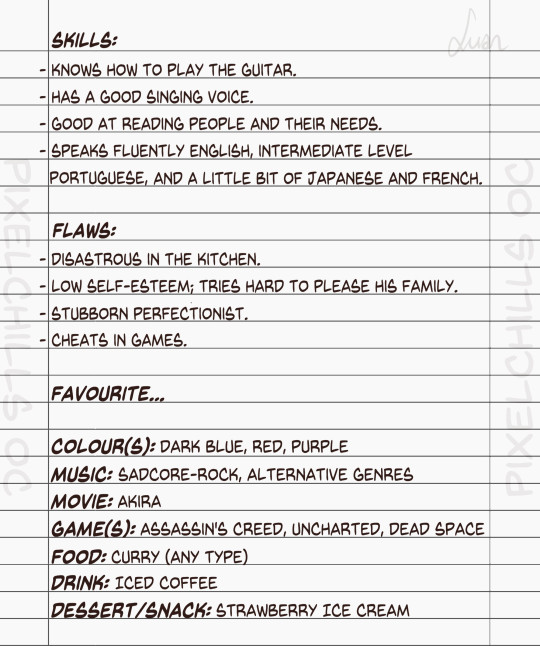 Luan
SKILLS:
- KNOWS HOW TO PLAY THE GUITAR.
- HAS A GOOD SINGING VOICE.
- GOOD AT READING PEOPLE AND THEIR NEEDS.
- SPEAKS FLUENTLY ENGLISH, INTERMEDIATE LEVEL
PORTUGUESE, AND A LITTLE BIT OF JAPANESE AND FRENCH.
FLAWS:
- DISASTROUS IN THE KITCHEN.
- LOW SELF-ESTEEM; TRIES HARD TO PLEASE HIS FAMILY.
- STUBBORN PERFECTIONIST.
- CHEATS IN GAMES.
FAVOURITE...
COLOUR(S): DARK BLUE, RED, PURPLE
MUSIC: SADCORE-ROCK, ALTERNATIVE GENRES
MOVIE: AKIRA
GAME(S): ASSASSIN'S CREED, UNCHARTED, DEAD SPACE
FOOD: CURRY (ANY TYPE)
DRINK: ICED COFFEE
DESSERT/SNACK: STRAWBERRY ICE CREAM
PIXELCHILLS OC
PIXELCHILLS OC